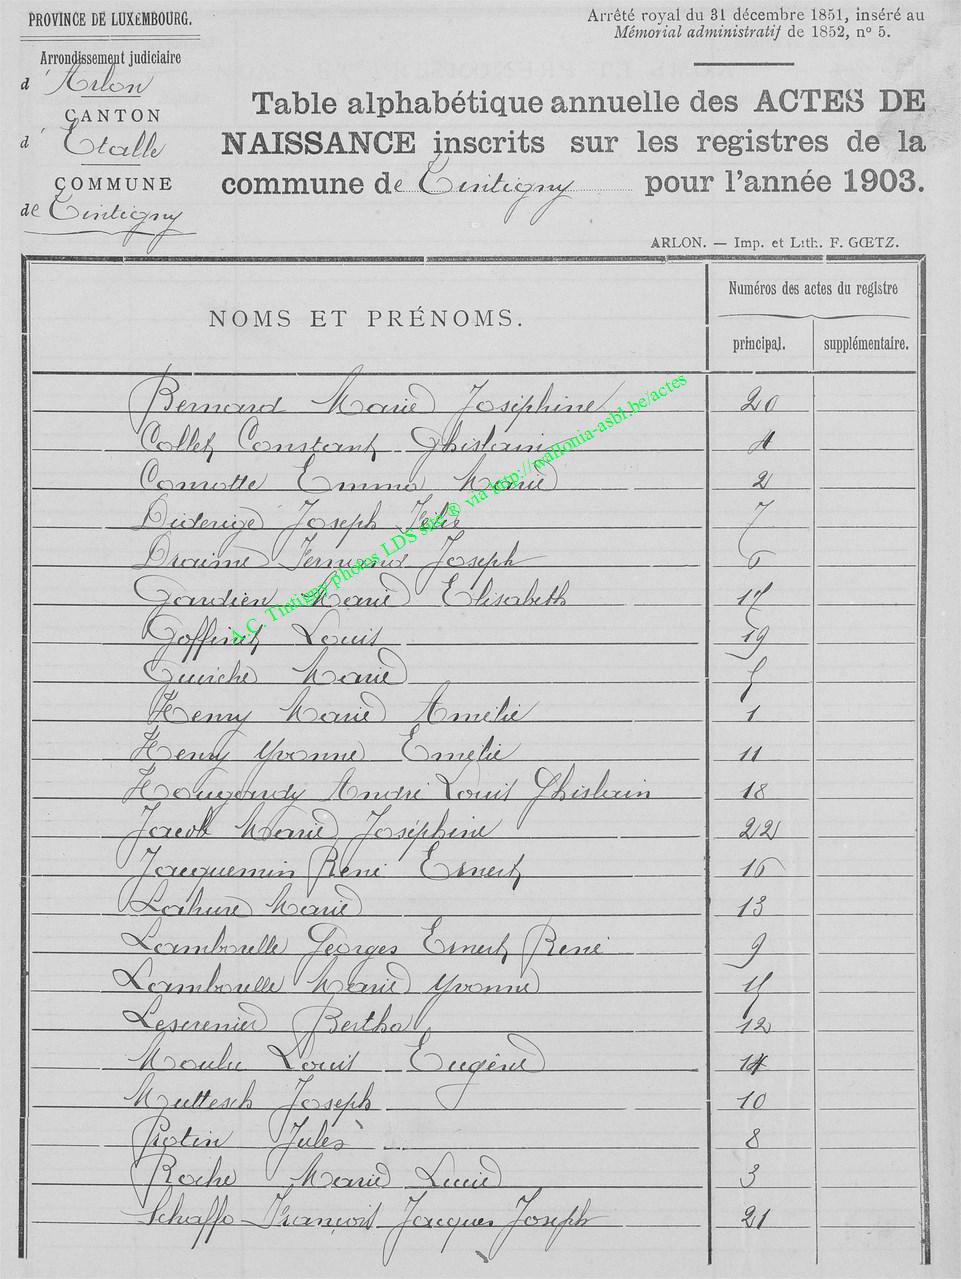 PROVINCE DE LUXEMBOURG.
Arrondissement judiciaire
d'Arlon
CANTON
d'Etalle
COMMUNE
de Tintigny
Arrêté royal du 31 décembre 1851, inséré au
Mémorial administratif de 1852, n° 5.
Table alphabétique annuelle des ACTES DE
NAISSANCE inscrits sur les registres de la
commune de Tintigny pour l'année 1903.
ARLON. — Imp. et Lith. F. GŒTZ.
NOMS ET PRÉNOMS.
Numéros des actes du registre
principal. supplémentaire.
Bernard Marie Joséphine 20
Collet Constant Ghislain 4
Comotte Emma Marie 2
Joseph Félix 7
Draime Fernand Joseph 6
Gardien Marie Elisabeth 17
Goffinet Louis 19
Guiche Marie 5
Henry Marie Amélie 1
Henry Yvonne Emélie 11
Hougardy André Louis Ghislain 18
Jacob Marie Joséphine 22
Jacquemin René Ernest 16
Lahure Marie 13
Lamborelle Georges Ernest René 9
Lamborelle Marie Yvonne
Leserenier Bertha 12
Louis Eugène 14
Muttesch Joseph 10
Protin Jules 8
Roche Marie Lucie 3
François Jacques Joseph 21
A.C. Tintigny photos LDS site ® via http://wallonia-asbl.be/actes